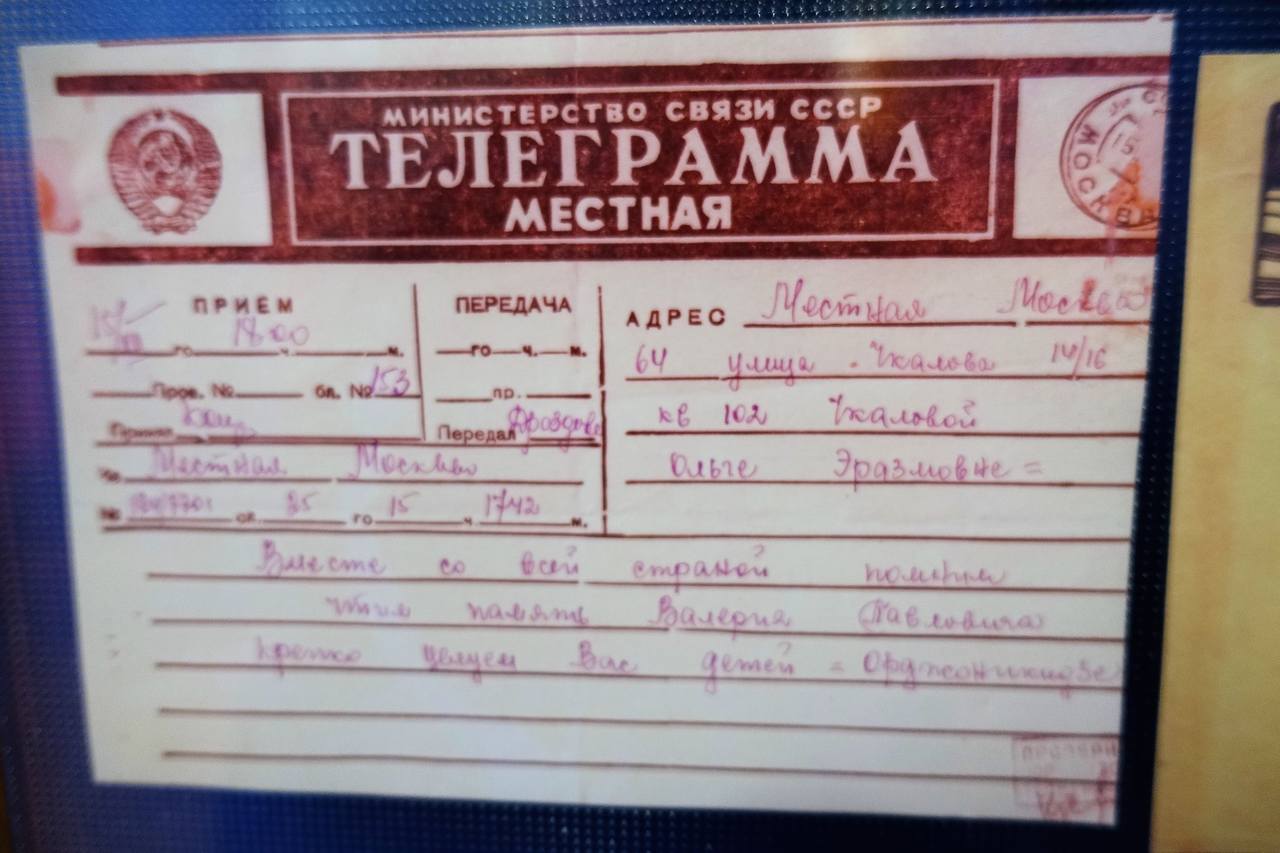 МИНИСТЕРСТВО СВЯЗИ СССР
ТЕЛЕГРАММА
МЕСТНАЯ
MOSCOW
МОСКВА
ПРИЕМ
15/
го 18 00 ч. м.
Пров. № бл. № 153
Принял
Из Местная Москва
№ сл. 15 го 15 ч 1742 м.
ПЕРЕДАЧА
го ч. м.
пр.
Передал Дроздова
АДРЕС Местная Москва
64 улица Чкалова 14/16
кв 102 Чкаловой
Ольге Эразмовне =
Вместе со всей страной помним
чтим память Валерия Павловича
крепко целуем Вас детей = Орджоникидзе